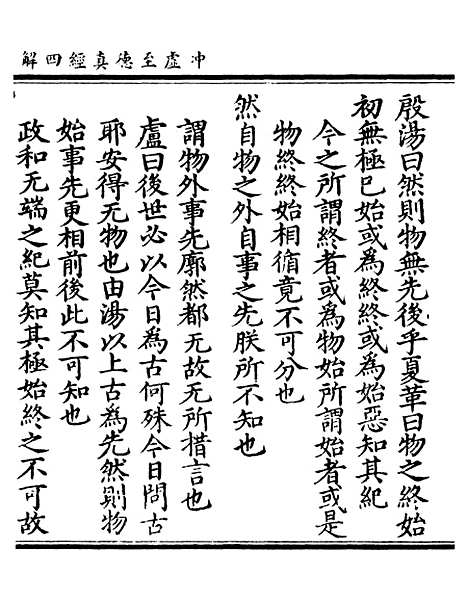 冲虛至德真經四解
殷湯曰然則物無先後乎夏革曰物之終始
初無極已始或為終終或為始惡知其紀
今之所謂終者或為物始所謂始者或是
物終終始相循竟不可分也
然自物之外自事之先朕所不知也
謂物外事先廓然都无故无所措言也
盧曰後世必以今日為古何殊今日問古
耶安得无物也由湯以上古為先然則物
始事先更相前後此不可知也
政和无端之紀莫知其極始終之不可故